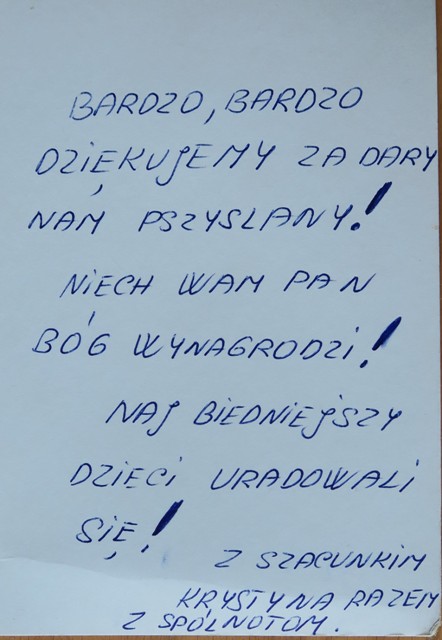 BARDZO, BARDZO
DZIĘKUJEMY ZA DARY
NAM PSZYSLANY!
NIECH WAM PAN
BÓG WYNAGRODZI!
NAJ BIEDNIEJSZY
DZIECI URADOWALI
SIĘ!
Z SZACUNKIM
KRYSTYNA RAZEM
Z SPÓLNOTOM.